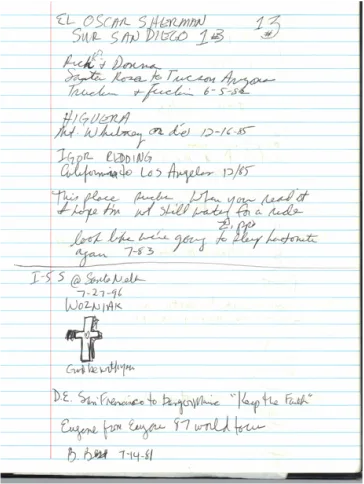 EL OSCAR SHERMAN 13
SUR SAN DIEGO 13
Rick & Donna
Santa Rosa to Tucson Arizona
Truckin & Fuckin 6-5-86
HIGUERA
Mt. Whitney or die 12-16-85
IGOR REDDING
California to Los Angeles 12/85
This place sucks. When you read it
I hope I'm not still waiting for a ride
look like we're going to sleep
again 7-83
I-5 S @ Santa Nella
7-27-96
WOZNIAK
God be with you
D.E. San Francisco to Bangor, Maine "Keep the Faith"
Eugene from Eugene 87 world tour
B. 7-14-81